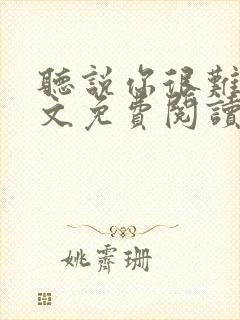 聽說你很難
文免費閱讀
姚霽珊